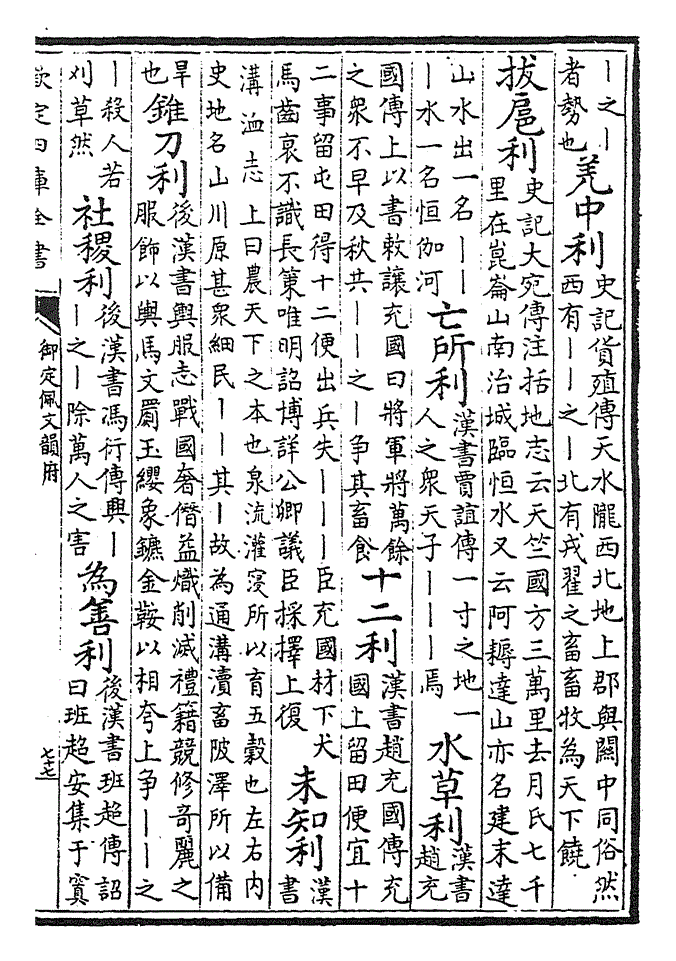 ｜之｜
者勢也
羌中利
史記貨殖傳天水隴西北地上郡與關中同俗然
西有｜｜之｜北有戎翟之畜畜牧為天下饒
拔扈利
史記大宛傳注括地志云天竺國方三萬里去月氏七千
里在崑崙山南治城臨恒水又云阿耨達山亦名建末達
山水出一名｜｜
｜水一名恒伽河
亡所利
漢書賈誼傳一寸之地一
人之衆天子｜｜｜焉
水草利
漢書
趙充
國傳上以書敕讓充國曰將軍將萬餘
之衆不早及秋共｜｜之｜爭其畜食
十二利
漢書趙充國傳充
國上留田便宜十
二事留屯田得十二便出兵失｜｜｜臣充國材下犬
馬齒衰不識長策唯明詔博詳公卿議臣採擇上復
未知利
漢
書
溝洫志上曰農天下之本也泉流灌寖所以育五穀也左右内
史地名山川原甚衆細民｜｜其｜故為通溝瀆畜陂澤所以備
旱
也
錐刀利
後漢書輿服志戰國奢僭益熾削滅禮籍競修奇麗之
服飾以輿馬文罽玉纓象鑣金鞍以相夸上爭｜｜之
｜殺人若
刈草然
社稷利
後漢書馮衍傳興｜
｜之｜除萬人之害
為善利
後漢書班超傳詔
曰班超安集于窴
欽定四庫全書
御定佩文韻府